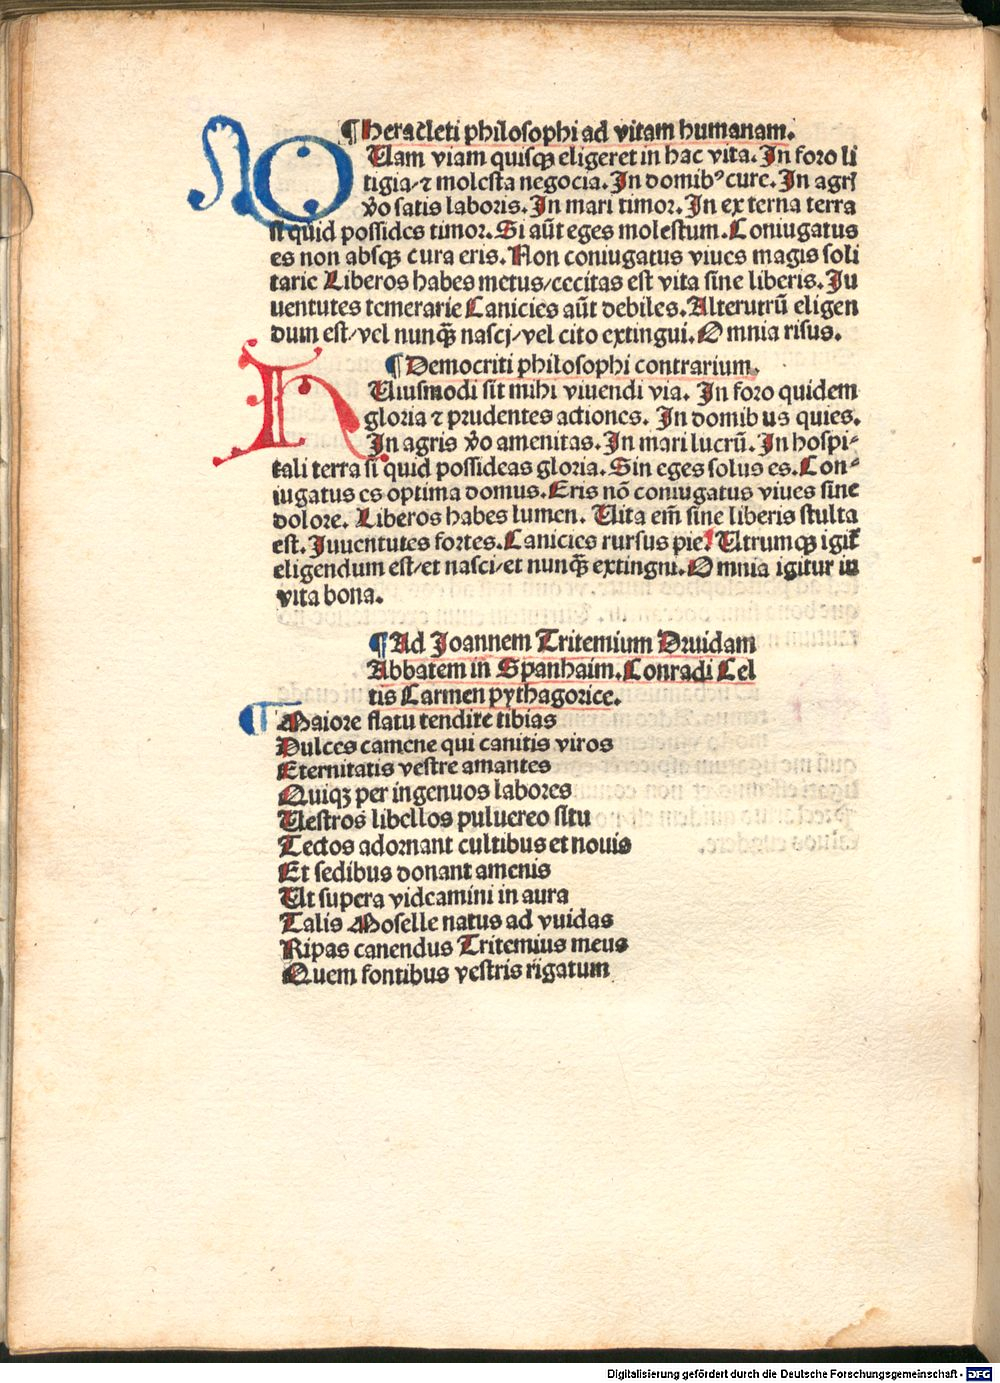 ¶Heracleti philosophi ad vitam humanam.
QUam viam quisqꝫ eligeret in hac vita. In foro li
tigia/⁊ molesta negocia. In domibꝰ cure. In agri
v̄o satis laboris. In mari timor. In ex terna terra
si quid possides timor. Si aūt eges molestum. Coniugatus
es non absqꝫ cura eris. Non coniugatus viues magis soli
tarie Liberos habes metus/cecitas est vita sine liberis. Ju
uentutes temerarie Canicies aūt debiles. Alterutrū eligen
dum est/vel nunqƺ̄ nasci/vel cito extingui. Omnia risus.
¶Democriti philosophi contrarium.
HUiusmodi sit mihi viuendi via. In foro quidem
gloria ⁊ prudentes actiones. In domib us quies.
In agris v̄o amenitas. In mari lucrū. In hospi-
tali terra si quid possideas gloria. Sin eges solus es. Con-
iugatus es optima domus. Eris nō coniugatus viues sine
dolore. Liberos habes lumen. Uita em̄ sine liberis stulta
est. Juuentutes fortes. Canicies rursus pie. Utrumqꝫ igit̄
eligendum est/et nasci/et nunqƺ̄ extingui. Omnia igitur in
vita bona.
¶Ad Joannem Tritemium Druidam
Abbatem in Spanhaim. Conradi Cel
tis Carmen pythagorice.
Maiore flatu tendite tibias
Dulces camene qui canitis viros
Eternitatis vestre amantes
Quiqꝫ per ingenuos labores
Uestros libellos puluereo situ
Tectos adornant cultibus et nouis
Et sedibus donant amenis
Ut supera videamini in aura
Talis Moselle natus ad vuidas
Ripas canendus Tritemius meus
Quem fontibus vestris rigatum
Digitalisierung gefördert durch die Deutsche Forschungsgemeinschaft - DFG